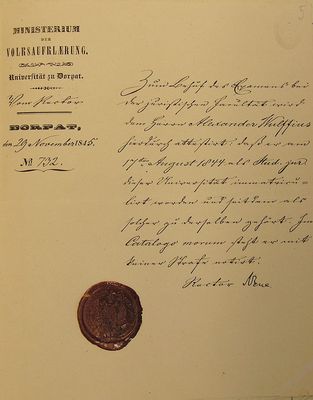 5
MINISTERIUM
DER
VOLKSAUFKLÆRUNG.
Universität zu Dorpat.
Vom Rector
DORPAT,
den 29 November 1845.
No. 732.
Zum Behuf des Examens bei
der juristischen Facultät wird
dem Herrn Alexander Wulffius
hierdurch attestirt: daß er am
17ten August 1844 als Stud. jur.
dieser Universität immatricu-
lirt worden und seitdem als
solcher zu derselben gehört. Im
Catalogo morum steht er mit
keiner Strafe notirt.
Rector Neue